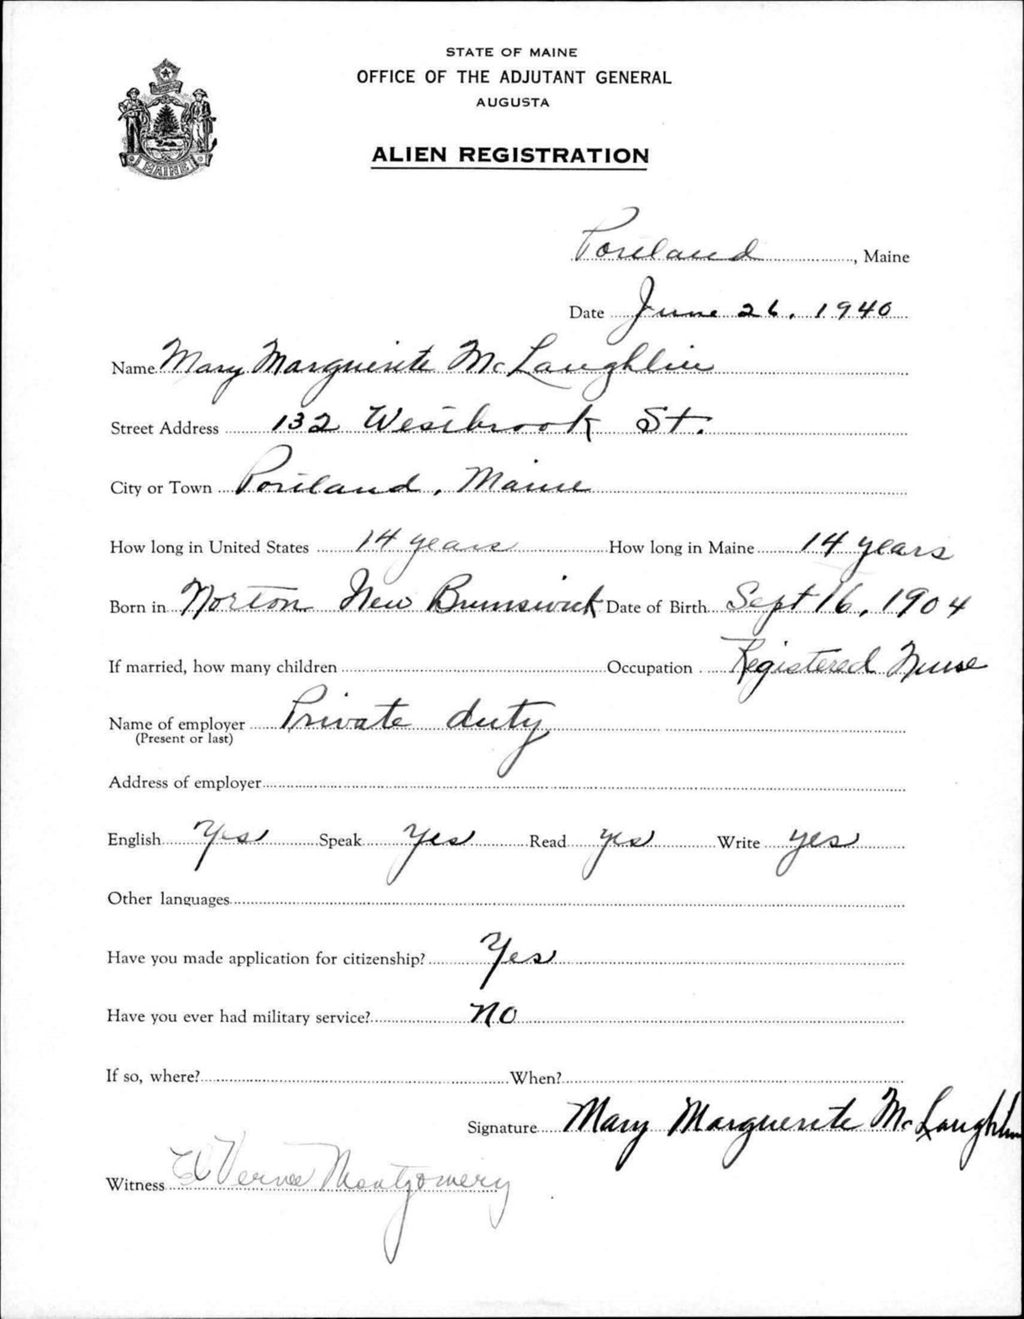 STATE OF MAINE
OFFICE OF THE ADJUTANT GENERAL
AUGUSTA
ALIEN REGISTRATION
MAINE
Portland, Maine
Date June 26, 1940
Name Mary Marguerite McLaughlin
Street Address 132 Westbrook St.
City or Town Portland, Maine
How long in United States 14 years How long in Maine 14 years
Born in Norton New Brunswick Date of Birth Sept 16, 1904
If married, how many children Occupation Registered Nurse
Name of employer Private duty
(Present or last)
Address of employer
English Yes Speak Yes Read yes Write yes
Other languages
Have you made application for citizenship? Yes
Have you ever had military service? No
If so, where? When?
Signature Mary Marguerite McLaughlin
Witness Montgomery